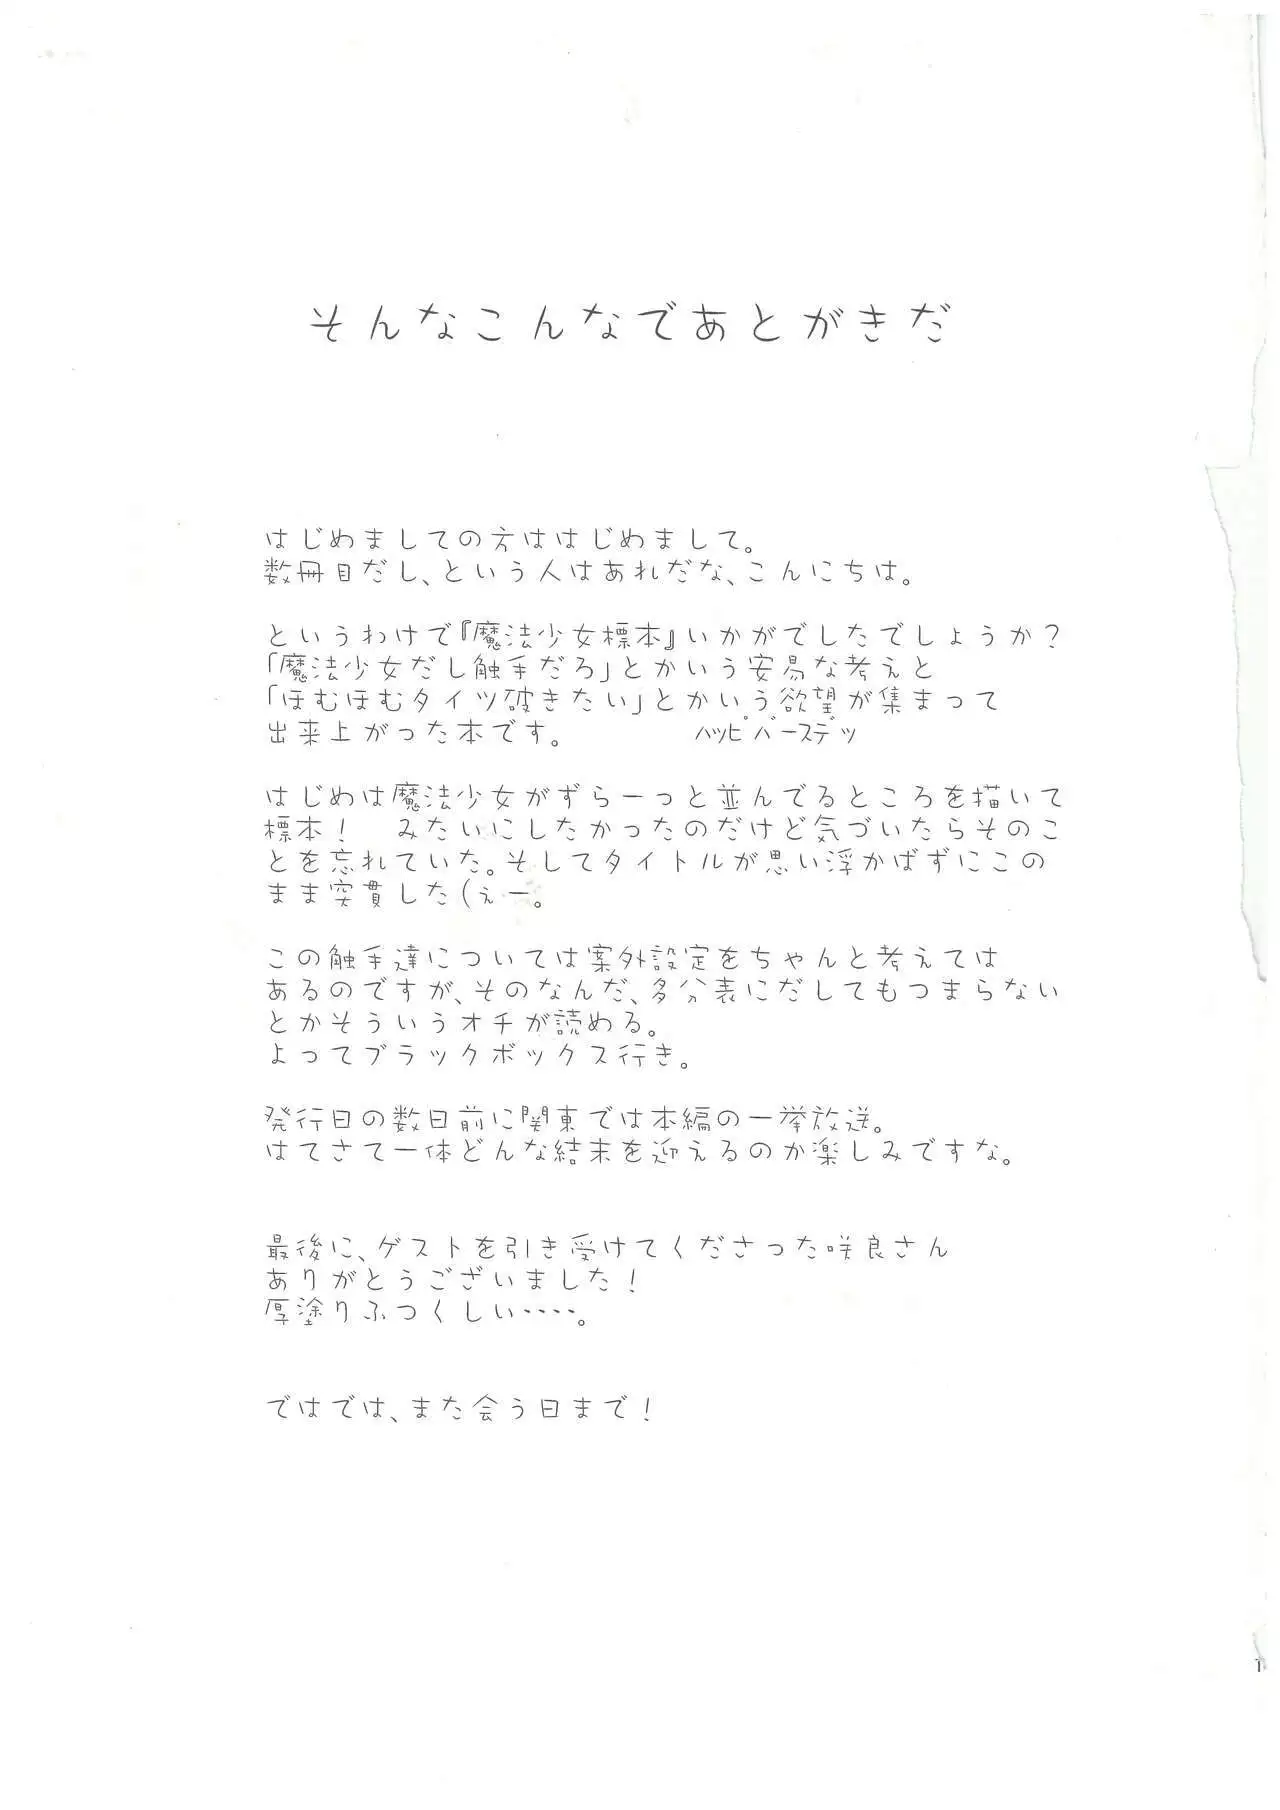 そんなこんなであとがきだ
はじめましての方ははじめまして。
数冊目だし、という人はあれだな、こんにちは。
というわけで『魔法少女標本』いかがでしたでしょうか？
「魔法少女だし触手だろ」とかいう安易な考えと
「ほむほむタイツ破きたい」とかいう欲望が集まって
出来上がった本です。　ﾊｯﾋﾟﾊﾞｰｽﾃﾞｯ
はじめは魔法少女がずらーっと並んでるところを描いて
標本！　みたいにしたかったのだけど気づいたらそのこ
とを忘れていた。そしてタイトルが思い浮かばずにこの
まま突貫した（ぇー。
この触手達については案外設定をちゃんと考えては
あるのですが、そのなんだ、多分表にだしてもつまらない
とかそういうオチが読める。
よってブラックボックス行き。
発行日の数日前に関東では本編の一挙放送。
はてさて一体どんな結末を迎えるのか楽しみですな。
最後に、ゲストを引き受けてくださった咲良さん
ありがとうございました！
厚塗りふつくしい････。
ではでは、また会う日まで！